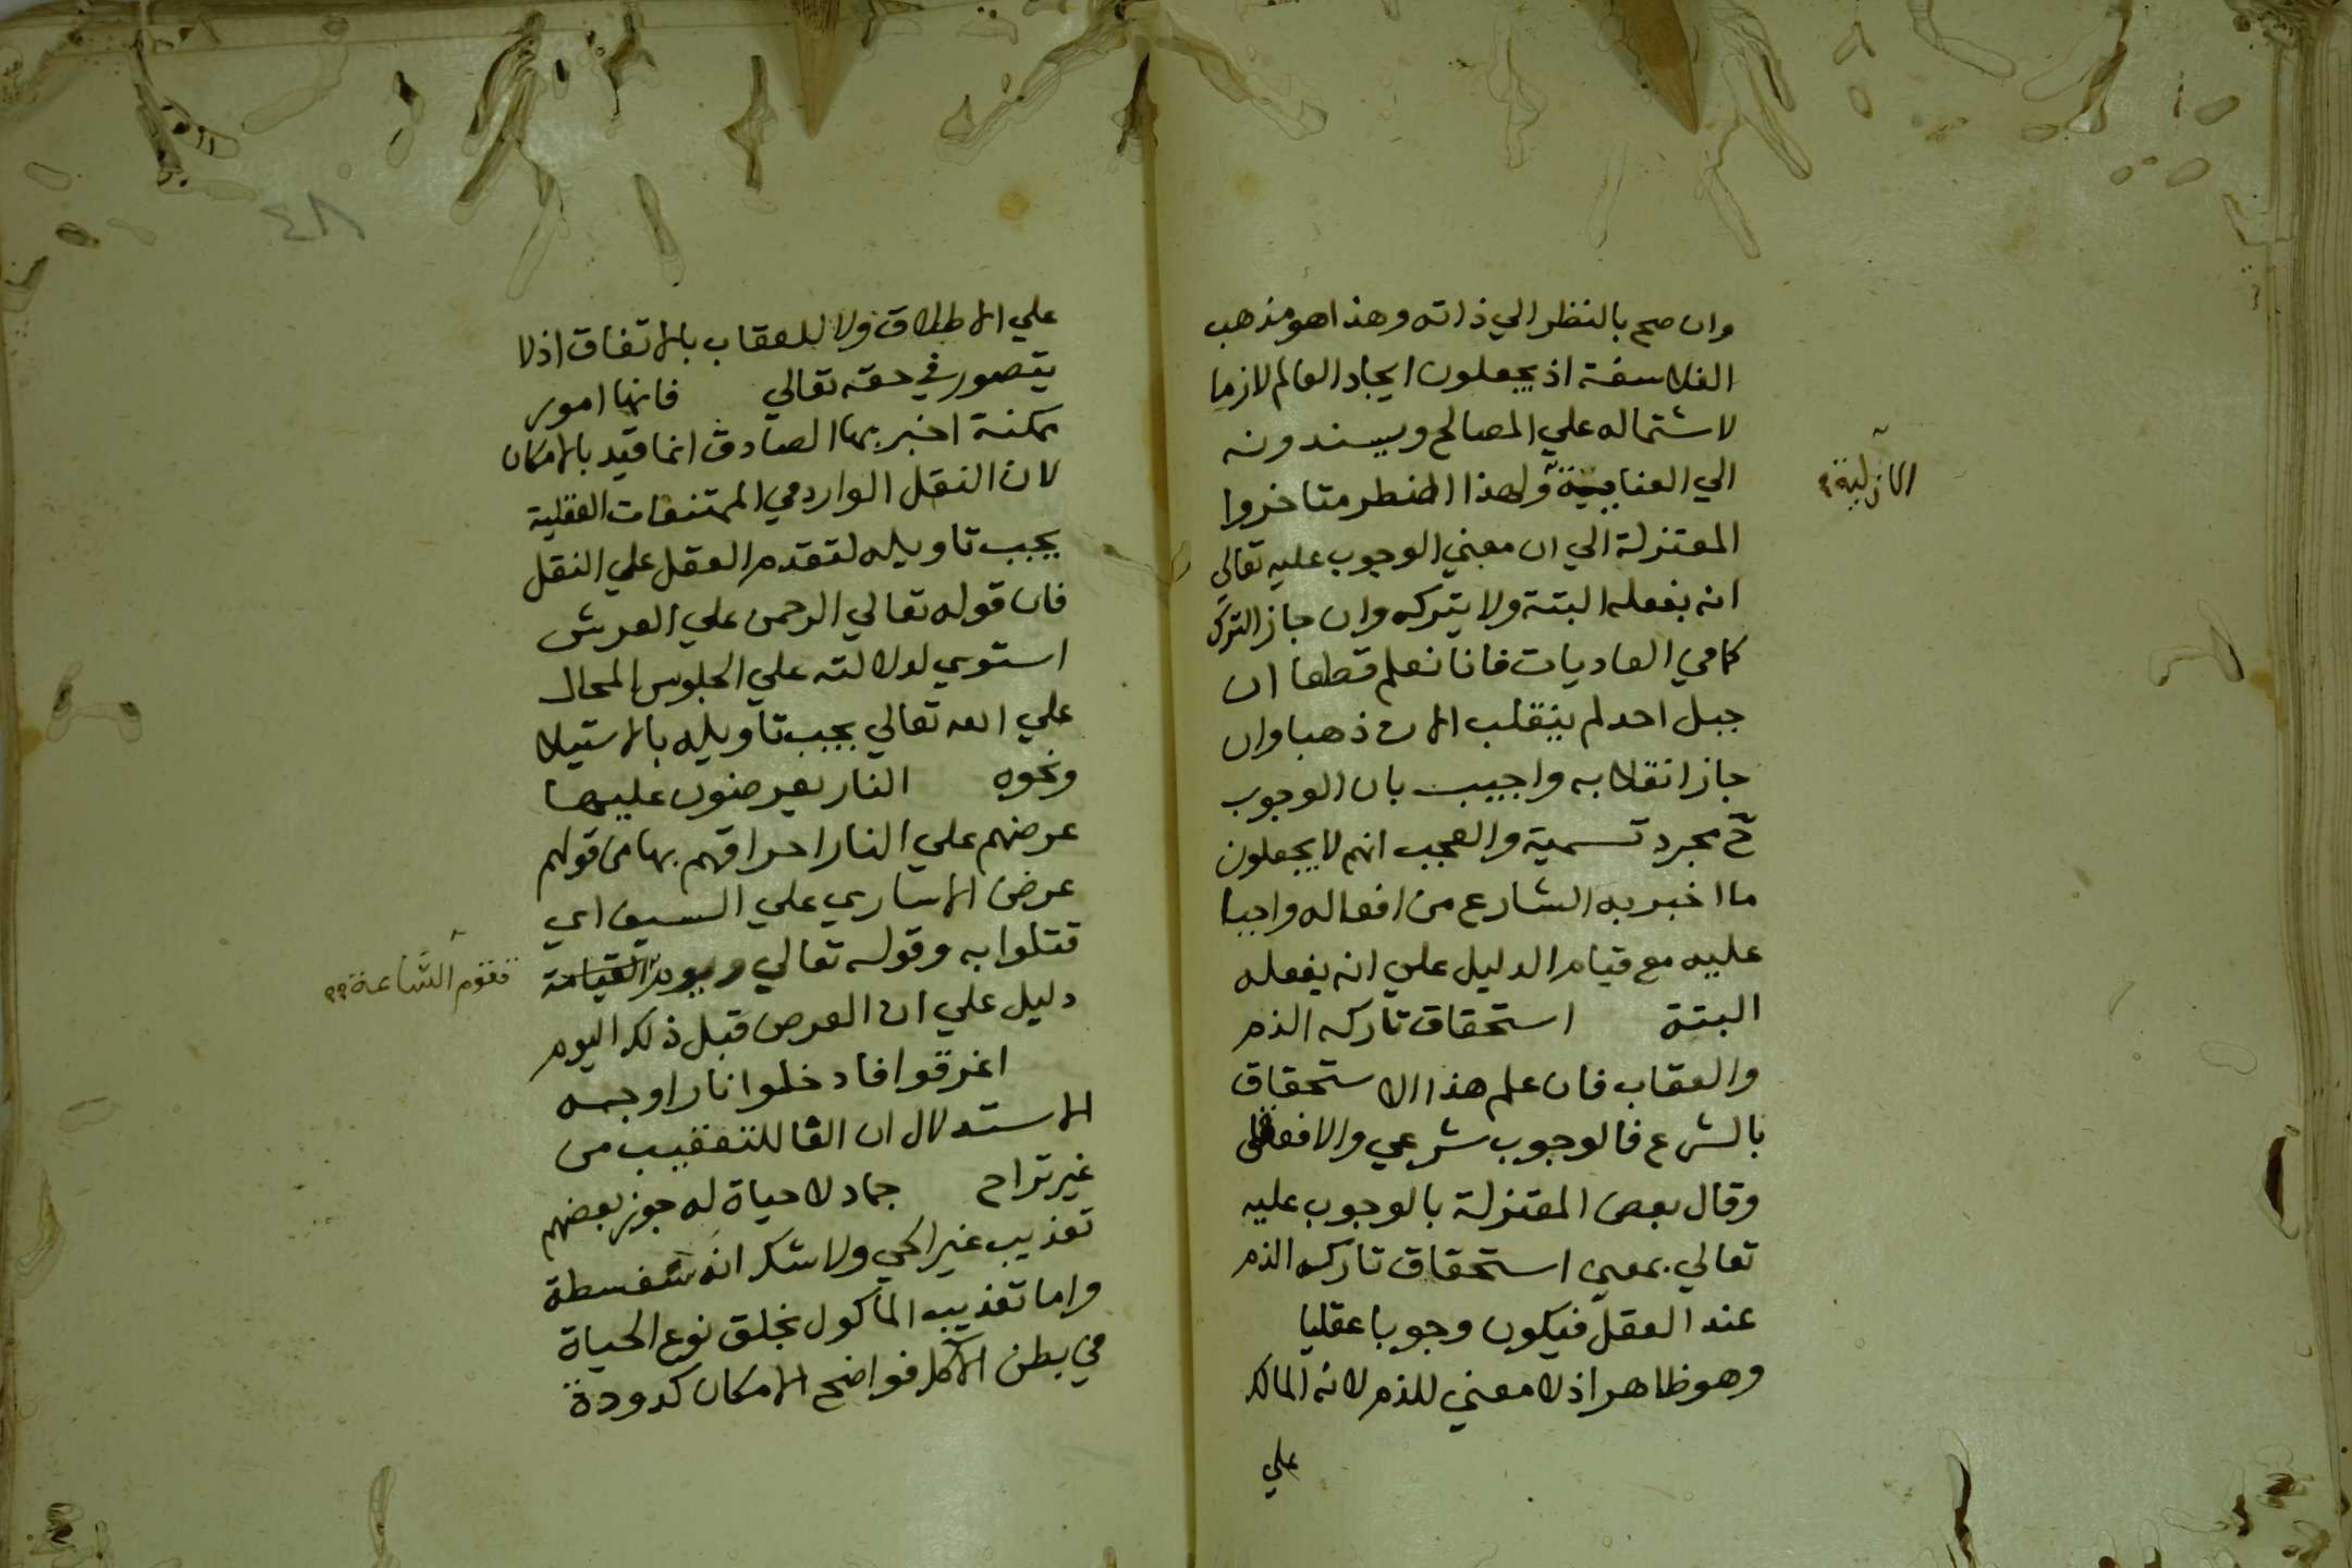 وان صح بالنظر الي ذاته وهذا هو مذهب
الفلاسفة اذ يجعلون ايجاد العالم لازما
لاشتماله علي المصالح ويسندونه
الي العناية ولهذا اضطر متاخروا
الازلية
المعتزلة الي ان معني الوجوب عليه تعالي
انه يفعله البتة ولا يتركه وان جاز الترك
كما في العاديات فانا نعلم قطعا ان
جبل احد لم ينقلب الان ذهبا وان
جاز انقلابه واجيب بان الوجوب
ح مجرد تسمية والعجب انهم لا يجعلون
ما اخبر به الشارع من افعاله واجبا
عليه مع قيام الدليل علي انه يفعله
البتة استحقاق تاركه الذم
والعقاب فان علم هذا الاستحقاق
بالشرع فالوجوب شرعي والا فعقلي
وقال بعض المعتزلة بالوجوب عليه
تعالي بمعني استحقاق تاركه الذم
عند العقل فيكون وجوبا عقليا
وهو ظاهر اذ لا معني للذم لانه المالك
علي
٤٨
علي الاطلاق ولا للعقاب بالاتفاق اذ لا
يتصور في حقه تعالي فانها امور
ممكنة اخبر بها الصادق انما قيد بالامكان
لان النقل الوارد في الممتنعات العقلية
يجب تاويله لتقدم العقل علي النقل
فان قوله تعالي الرحمن علي العرش
استوي لدلالته علي الجلوس المحال
علي الله تعالي يجب تاويله بالاستيلا
ونحوه النار يعرضون عليها
عرضهم علي النار احراقهم بها من قولهم
عرض الاساري علي السيف اي
قتلوا به وقوله تعالي ويوم القيامة
تقوم الساعة
دليل علي ان العرض قبل ذلك اليوم
اغرقوا فادخلوا نارا وجه
الاستدلال ان الفا للتعقيب من
غير تراح جماد لا حياة له جوز بعضهم
تعذيب غير الحي ولا شك انه سفسطة
واما تعذيب الماكول بخلق نوع الحياة
في بطن الآكل فواضح الامكان كدودة